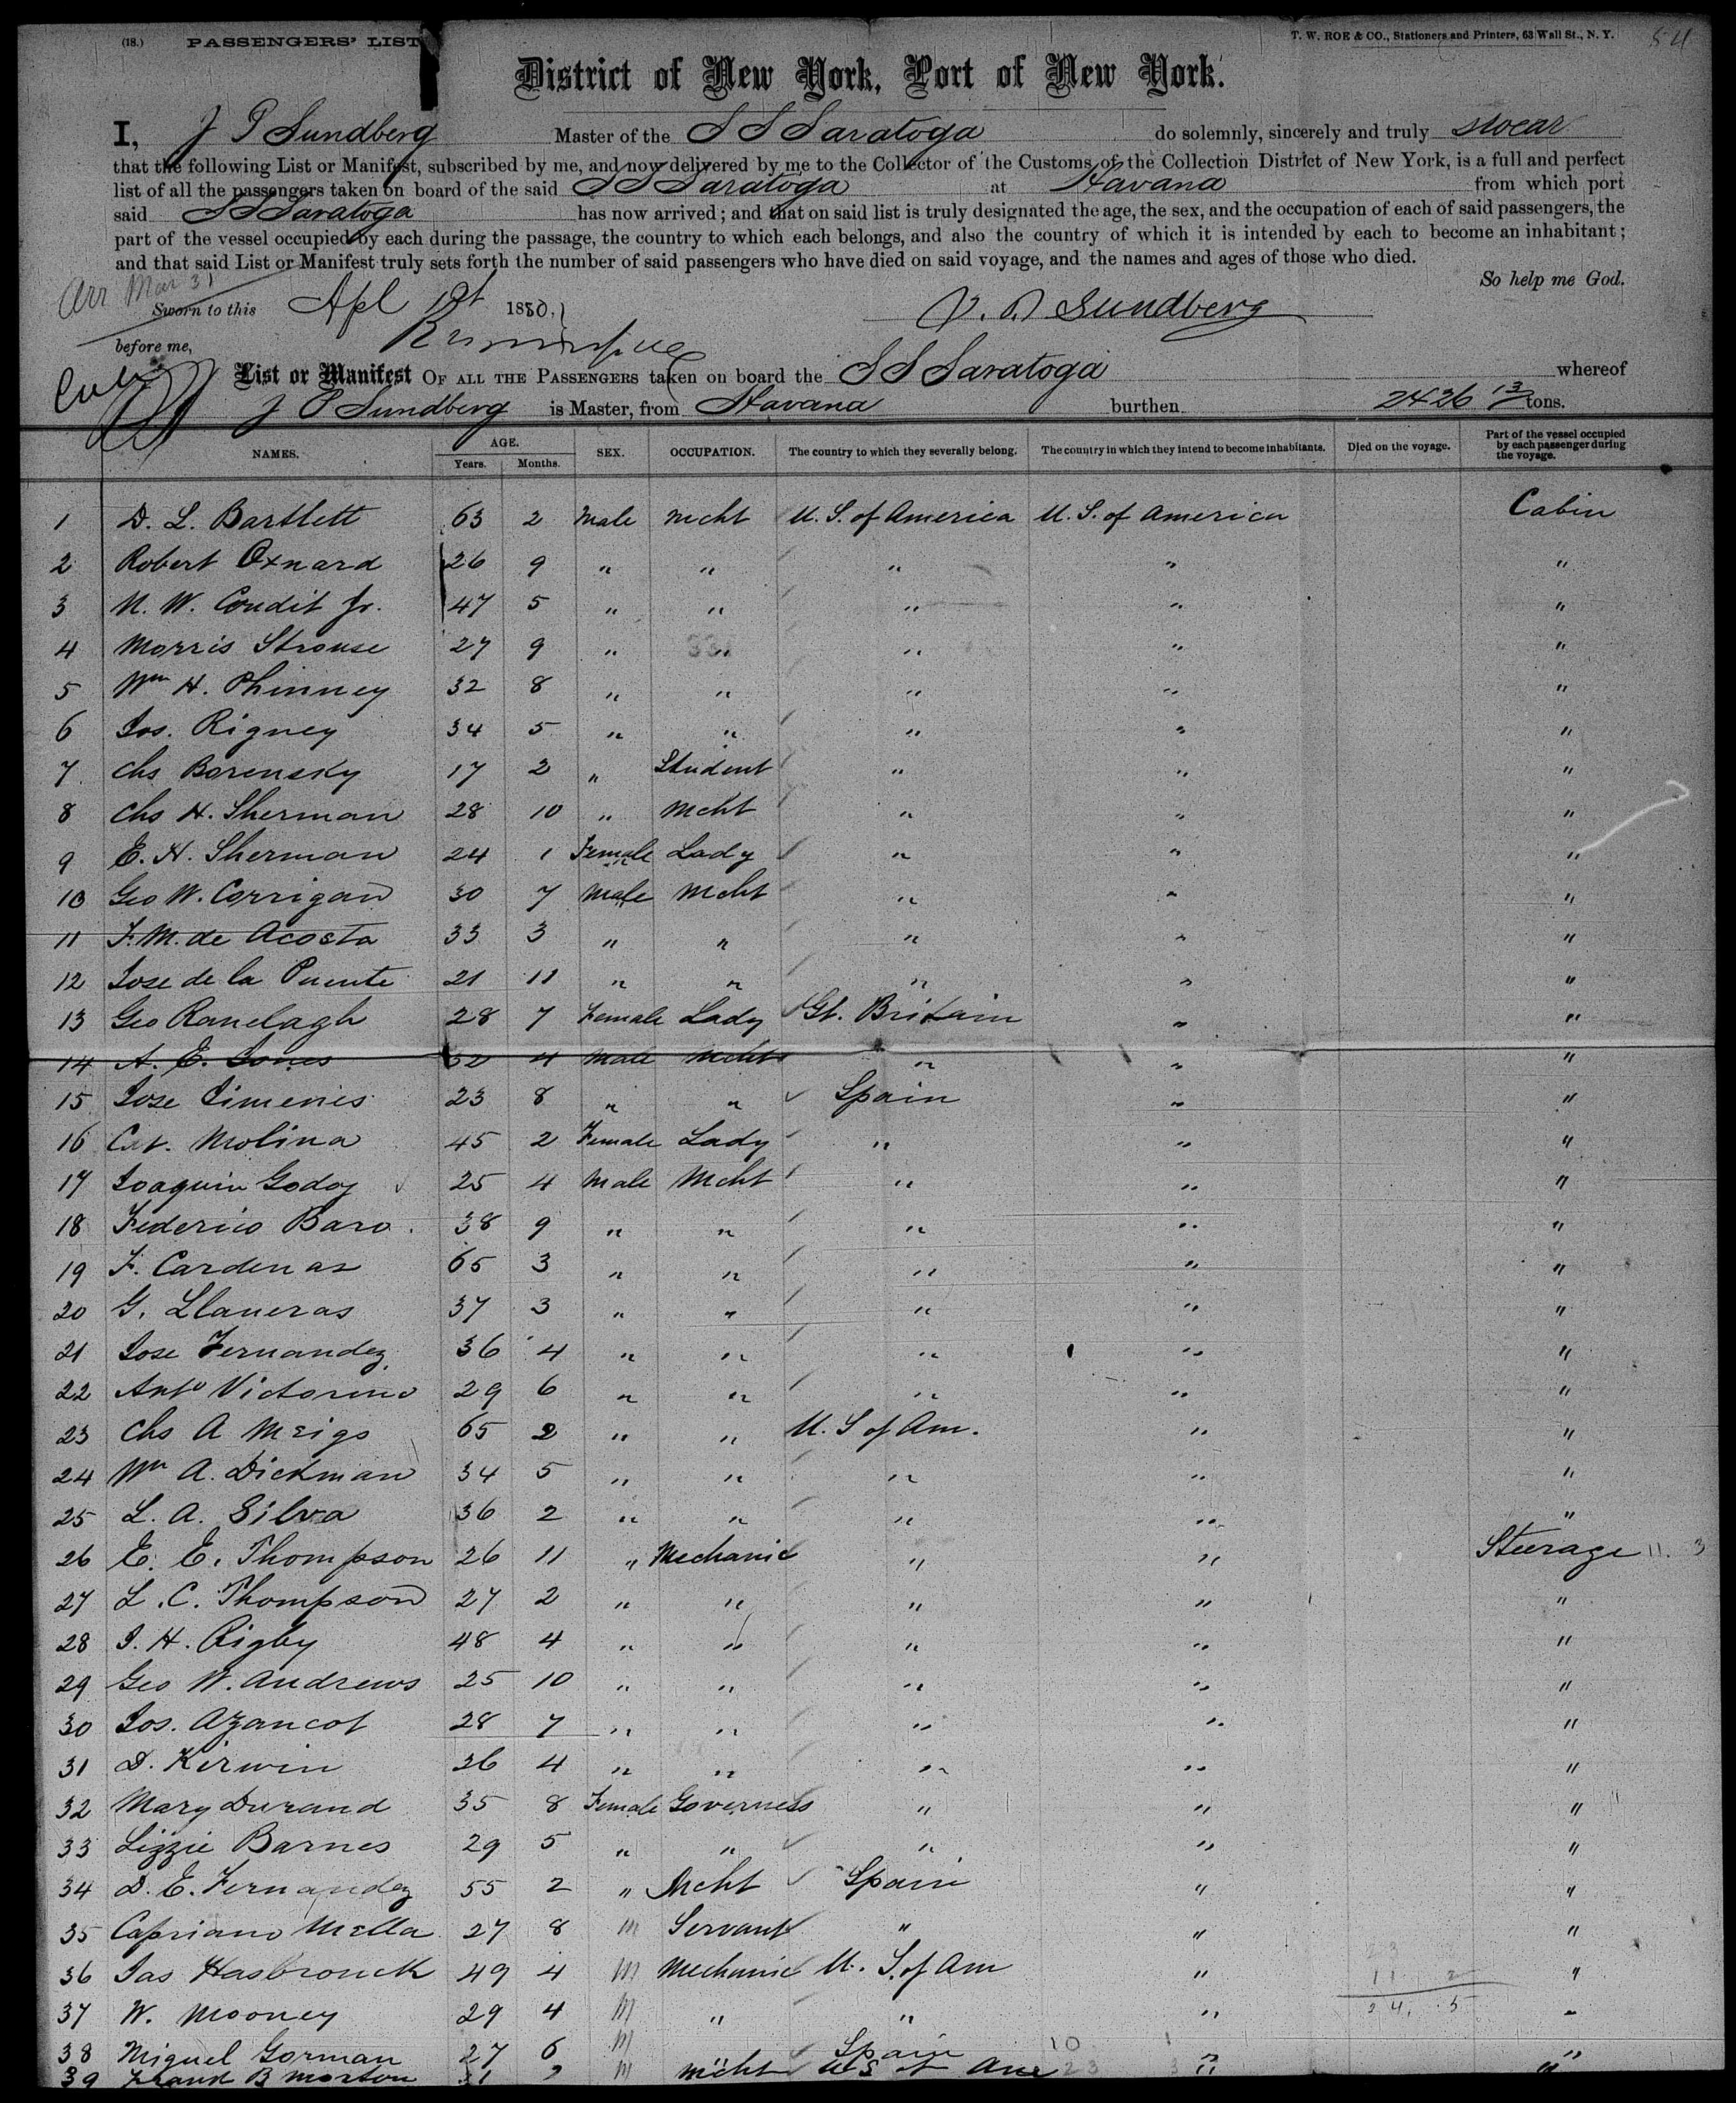 (18.) PASSENGERS' LIST
T. W. ROE & CO., Stationers and Printers, 63 Wall St., N. Y. 54
District of New York, Port of New York.
I, J P Sundberg Master of the S S Saratoga do solemnly, sincerely and truly swear
that the following List or Manifest, subscribed by me, and now delivered by me to the Collector of the Customs of the Collection District of New York, is a full and perfect
list of all the passengers taken on board of the said S S Saratoga at Havana from which port
said S S Saratoga has now arrived; and that on said list is truly designated the age, the sex, and the occupation of each of said passengers, the
part of the vessel occupied by each during the passage, the country to which each belongs, and also the country of which it is intended by each to become an inhabitant;
and that said List or Manifest truly sets forth the number of said passengers who have died on said voyage, and the names and ages of those who died.
So help me God.
Arr Mar 31
Sworn to this Apl 1st 1880.
J. P. Sundberg
before me,
List or Manifest OF ALL THE PASSENGERS taken on board the S S Saratoga whereof
J P Sundberg is Master, from Havana burthen 2426 tons.
NAMES. AGE. Years. Months. SEX. OCCUPATION. The country to which they severally belong. The country in which they intend to become inhabitants. Died on the voyage. Part of the vessel occupied by each passenger during the voyage.
1 D. L. Bartlett 63 2 Male Mcht U. S. of America U. S. of America Cabin
2 Robert Oxnard 26 9 " " " " "
3 N. W. Condit Jr. 47 5 " " " " "
4 Morris Strouse 27 9 " " " " "
5 Wm H. Phinney 32 8 " " " " "
6 Jos. Rigney 34 5 " " " " "
7 Chs Borensky 17 2 " Student " " "
8 Chs H. Sherman 28 10 " Mcht " " "
9 E. H. Sherman 24 1 Female Lady " " "
10 Geo W. Corrigan 30 7 Male Mcht " " "
11 F. M. de Acosta 33 3 " " " " "
12 Jose de la Puente 21 11 " " " " "
13 Geo Ranelagh 28 7 Female Lady Gt. Britain " "
14 A. E. Jones 52 4 Male Mcht " " "
15 Jose Jimenis 23 8 " " Spain " "
16 Cat. Molina 45 2 Female Lady " " "
17 Joaquin Godoy 25 4 Male Mcht " " "
18 Federico Baro 38 9 " " " " "
19 F. Cardenas 65 3 " " " " "
20 G. Llaneras 37 3 " " " " "
21 Jose Fernandez 36 4 " " " " "
22 Anto Victorino 29 6 " " " " "
23 Chs A Meigs 65 2 " " U. S of Am. " "
24 Wm A. Dickman 34 5 " " " " "
25 L. A. Silva 36 2 " " " " "
26 E. E. Thompson 26 11 " Mechanic " " Steerage 11. 3
27 L. C. Thompson 27 2 " " " " "
28 J. H. Rigby 48 4 " " " " "
29 Geo W. Andrews 25 10 " " " " "
30 Jos. Azancot 28 7 " " " " "
31 D. Kirwin 26 4 " " " " "
32 Mary Durand 35 8 Female Governess " " "
33 Lizzie Barnes 29 5 " " " " "
34 D. E. Fernandez 55 2 " Mcht Spain " "
35 Capriano Mella 27 8 M Servant " " "
36 Jas Hasbrouck 49 4 M Mechanic U. S. of Am " "
37 W. Mooney 29 4 M " " " "
38 Miguel Gorman 27 6 M " Spain " "
39 Frank B Morton 31 M Mcht U S of Am " "